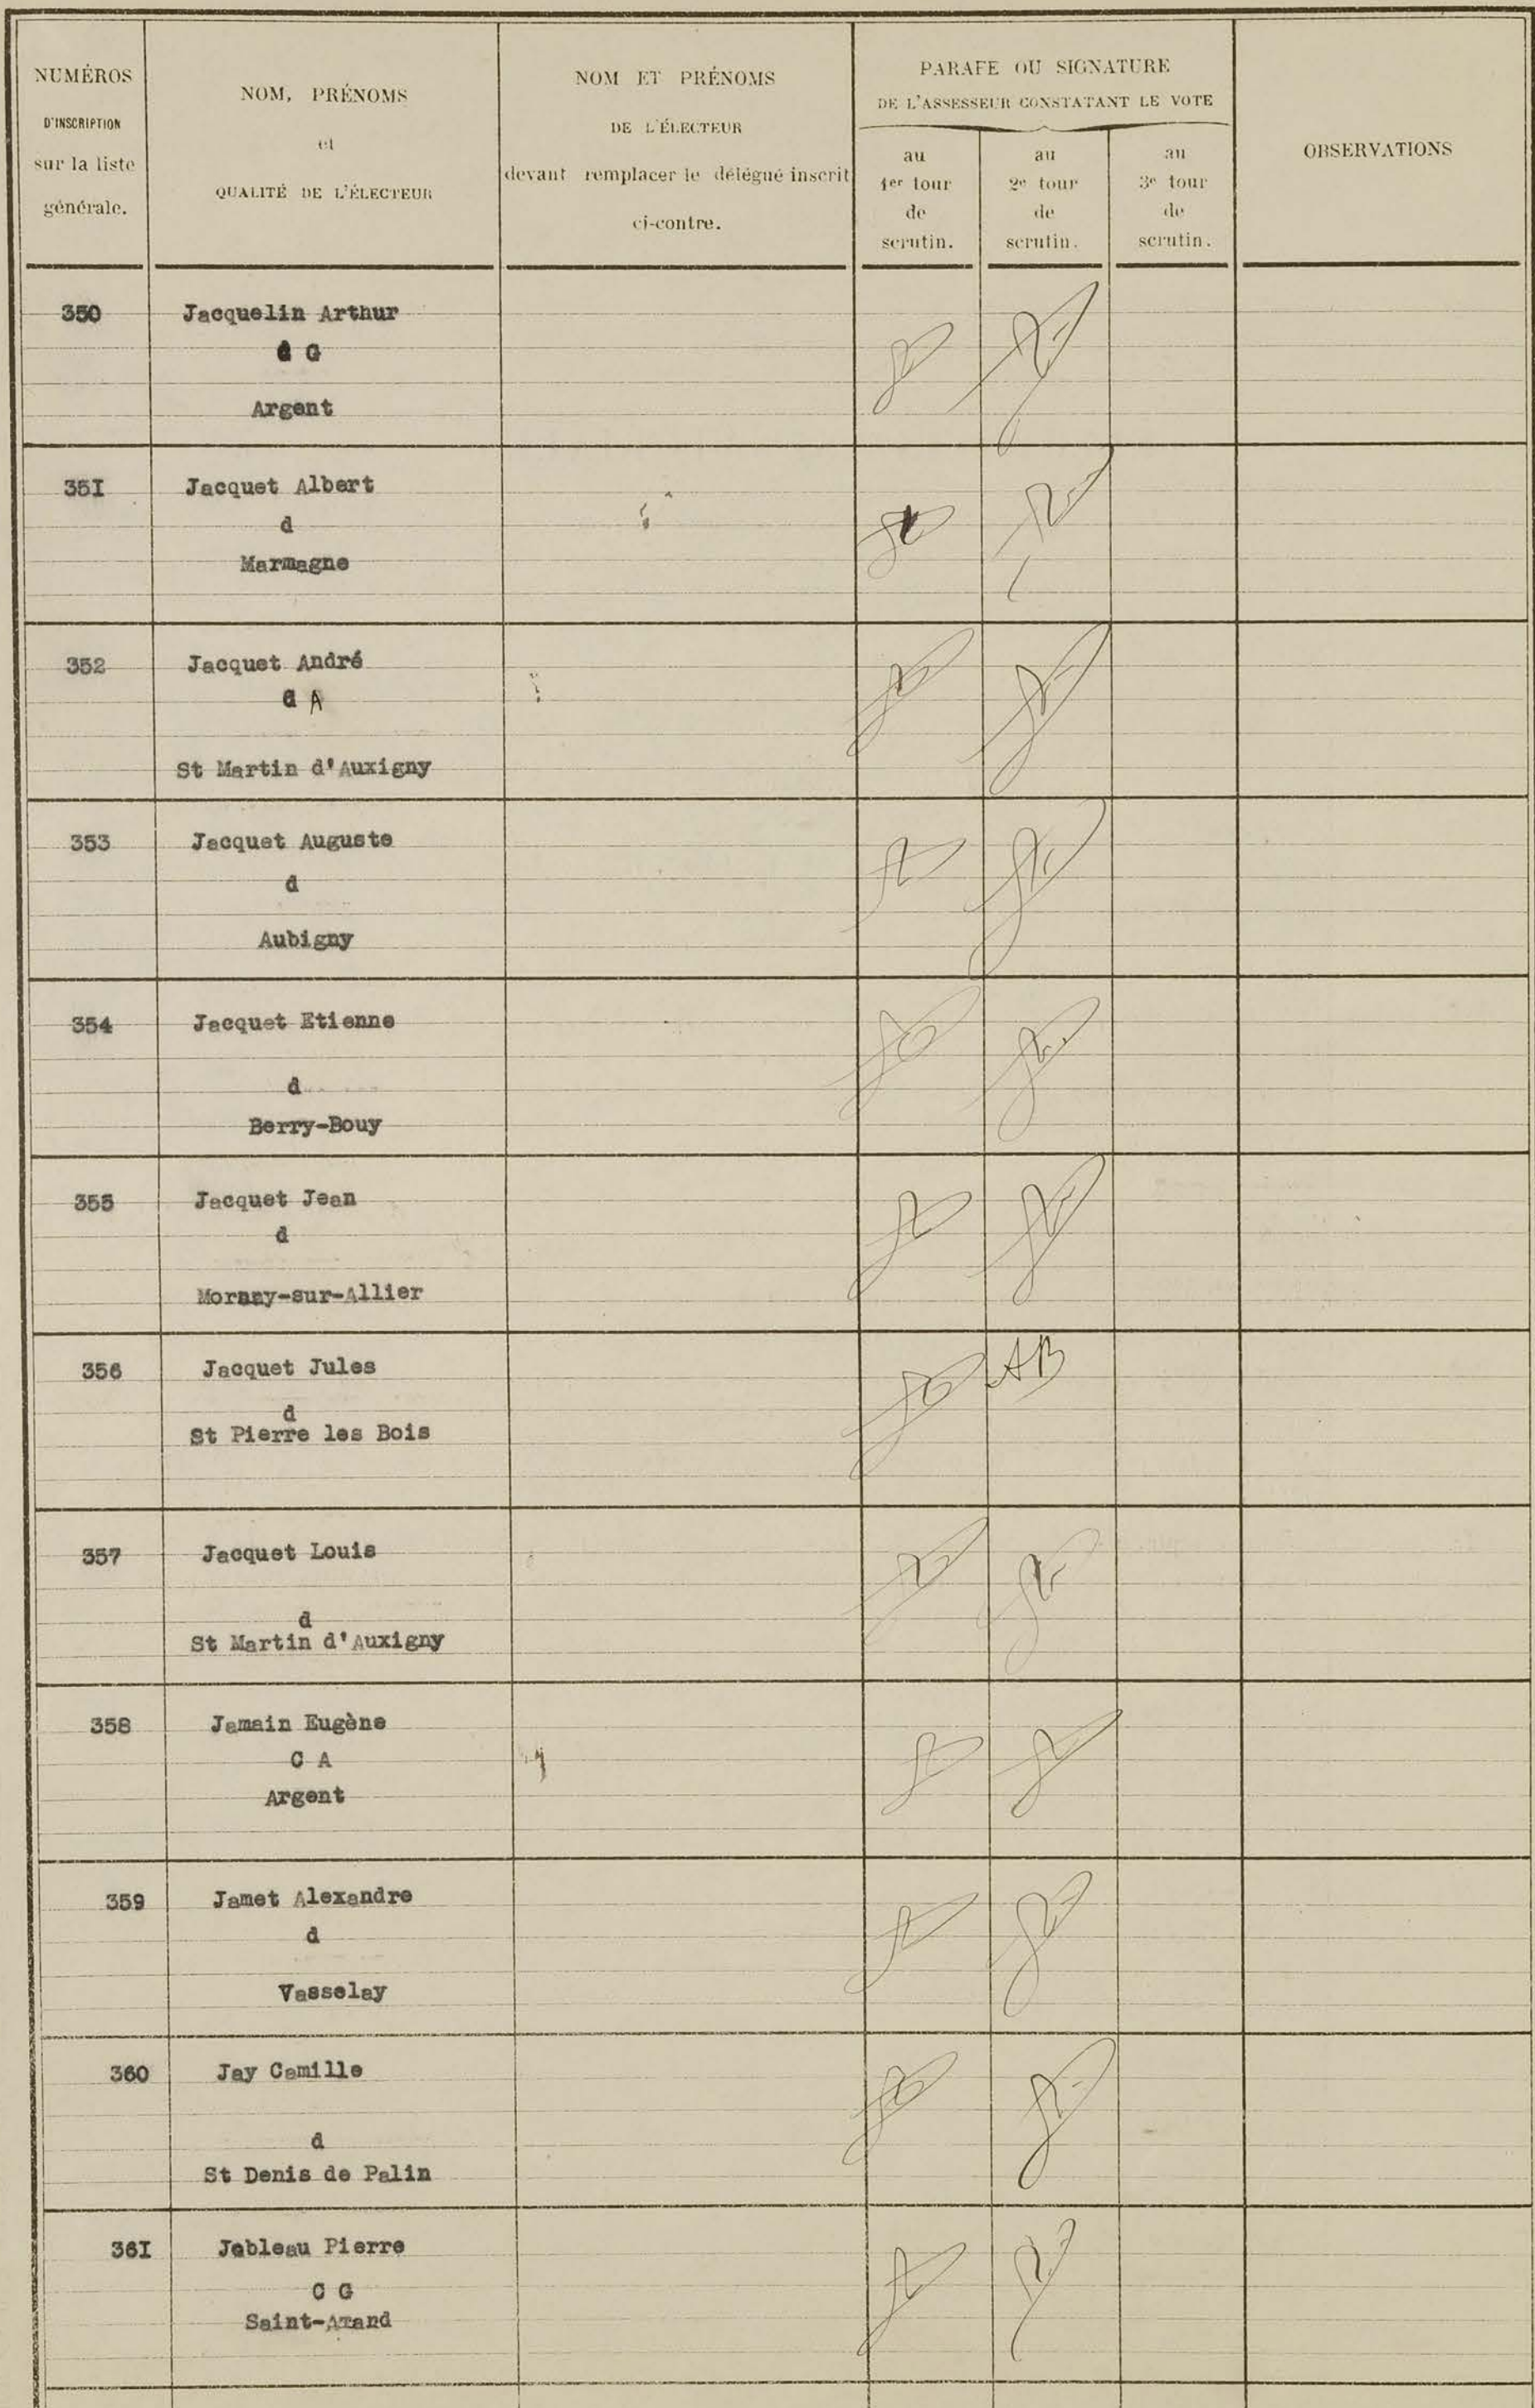 NUMÉROS
D'INSCRIPTION
sur la liste
générale.
NOM, PRÉNOMS
et
QUALITÉ DE L'ÉLECTEUR
NOM ET PRÉNOMS
DE L'ÉLECTEUR
devant remplacer le délégué inscrit
ci-contre.
PARAFE OU SIGNATURE
DE L'ASSESSEUR CONSTATANT LE VOTE
au
1er tour
de
scrutin.
au
2e tour
de
scrutin.
au
3e tour
de
scrutin.
OBSERVATIONS
350 Jacquelin Arthur
G
Argent
35I Jacquet Albert
d
Marmagne
352 Jacquet André
d A
St Martin d'Auxigny
353 Jacquet Auguste
d
Aubigny
354 Jacquet Etienne
d
Berry-Bouy
355 Jacquet Jean
d
Mornay-sur-Allier
356 Jacquet Jules AB
d
St Pierre les Bois
357 Jacquet Louis
d
St Martin d'Auxigny
358 Jamain Eugène
C A
Argent
359 Jamet Alexandre
d
Vasselay
360 Jay Camille
d
St Denis de Palin
36I Jebleau Pierre
C G